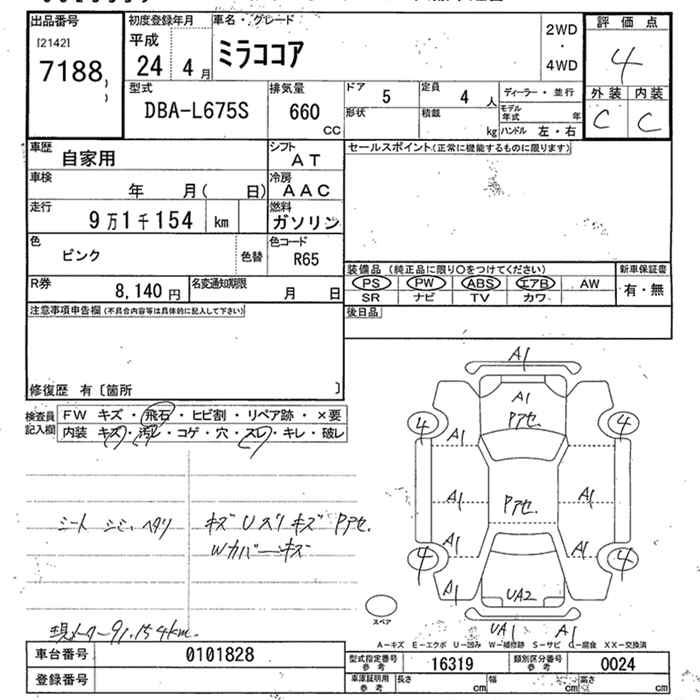 出品番号 初度登録年月 車名・グレード 2WD 評価点
[2142] 平成 ミラココア ・ 4
7188 24 年 4月 4WD
型式 排気量 ドア 5 定員 4人 ディーラー・並行 外装 内装
DBA-L675S 660 CC 形状 積載 kg モデル年式 年 C C
ハンドル 左・右
車歴 自家用 シフト AT セールスポイント(正常に機能するものに限ります)
車検 年 月( 日) 冷房 AAC
走行 9万1千154 km 燃料 ガソリン
色 ピンク 色替 色コード R65
装備品 (純正品に限り○をつけてください) 新車保証書
PS PW ABS エアB AW 有・無
SR ナビ TV カワ
R券 8,140円 名変通知期限 月 日
後日品
注意事項申告欄(不具合内容等は具体的に記入して下さい)
修復歴 有 [箇所 ]
検査員記入欄 FW キズ・飛石・ヒビ割・リペア跡・×要
内装 キズ・汚レ・コゲ・穴・スレ・キレ・破レ
A1
A1
Pアセ.
4 4
A1
A1 Pアセ. A1
A1 A1
4 4
A1
UA2
UA1 A1
シート シミ、ヘタリ キズ Uスリキズ Pアセ.
Wカバーキズ
現メーター91,154km.
スペア
A-キズ E-エクボ U-凹み W-補修跡 S-サビ C-腐食 XX-交換済
車台番号 0101828 型式指定番号 参考 16319 類別区分番号 参考 0024
登録番号 車庫証明用 参考 長さ cm 幅 cm 高さ cm